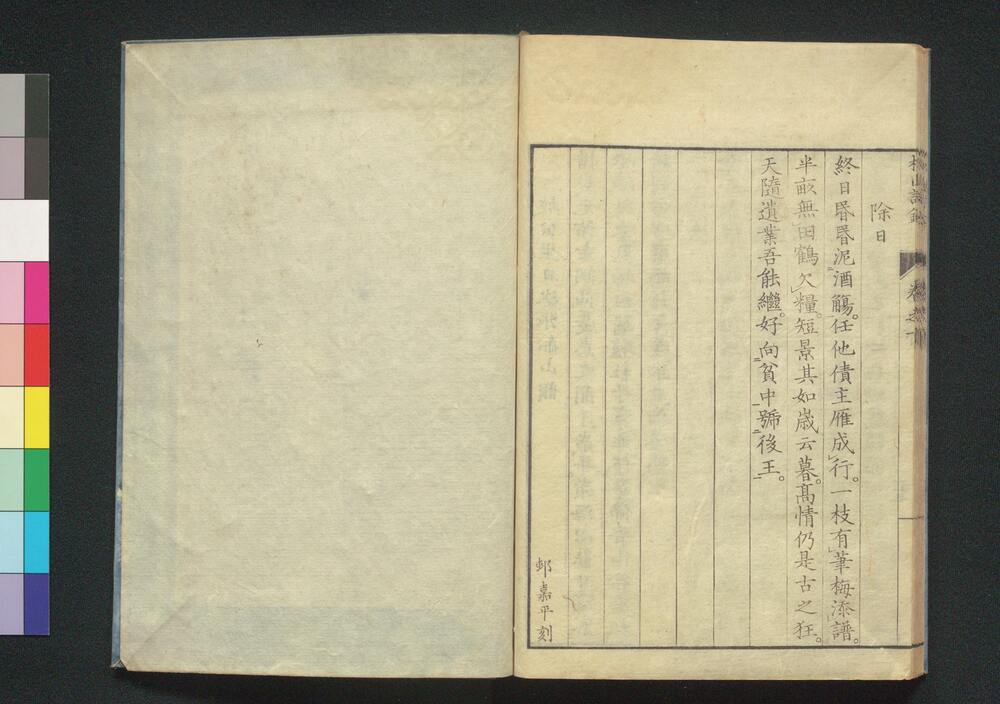 除日
終日昏昏泥酒觴。任他債主雁成行。一枝有筆梅添譜。
半畝無田鶴欠糧。短景其如歲云暮。高情仍是古之狂。
天隨遺業吾能繼。好向貧中號後王。
邨嘉平刻